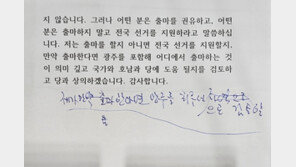 지 않습니다. 그러나 어떤 분은 출마를 권유하고, 어떤
분은 출마하지 말고 전국 선거를 지원하라고 말씀하십
니다. 저는 출마를 할지 아니면 전국 선거를 지원할지,
만약 출마한다면 광주를 포함해 어디에서 출마하는 것
이 의미 깊고 국가와 호남과 당에 도움 될지를 검토하
고 당과 상의하겠습니다. 감사합니다.
제가 만약 출마한다면 광주를